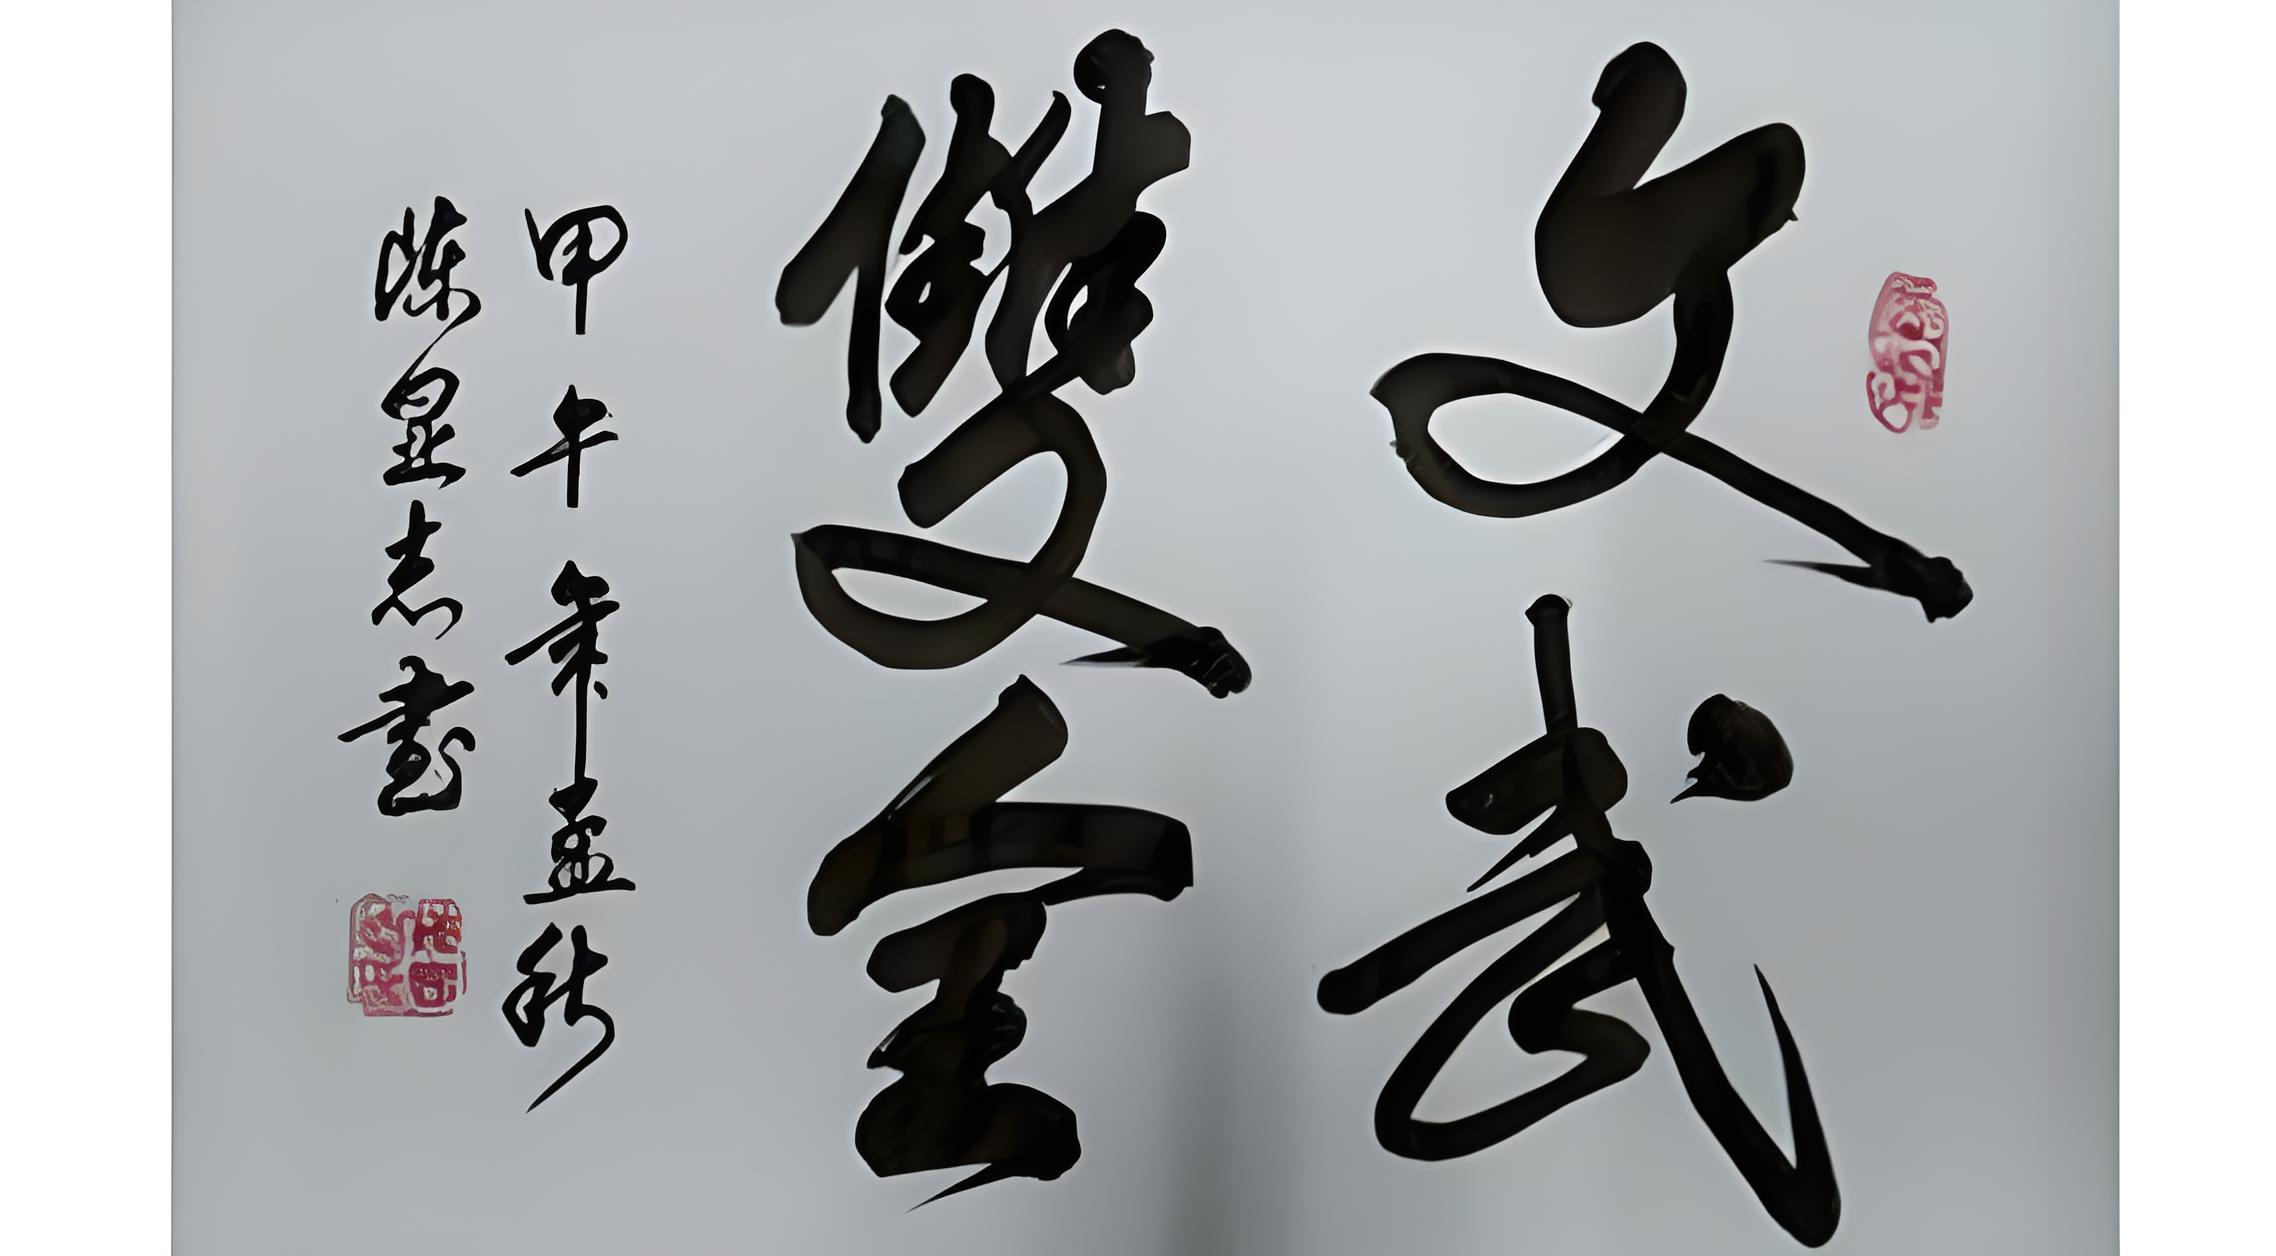 文武
雙全
甲午年孟秋
陈显志書